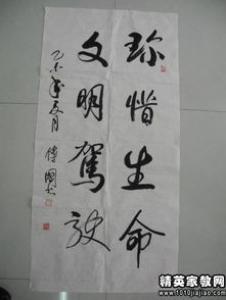 珍惜生命
文明駕驶
乙未年夏月
傅國
精英家教网
www.1010jiajiao.com